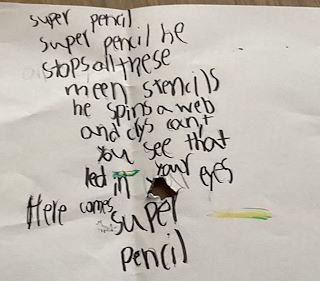 super pencil
super pencil he
stops all these
meen stencils
he spins a web
and clys can,t
you see that
led in your eyes
Here comes
super
pencil